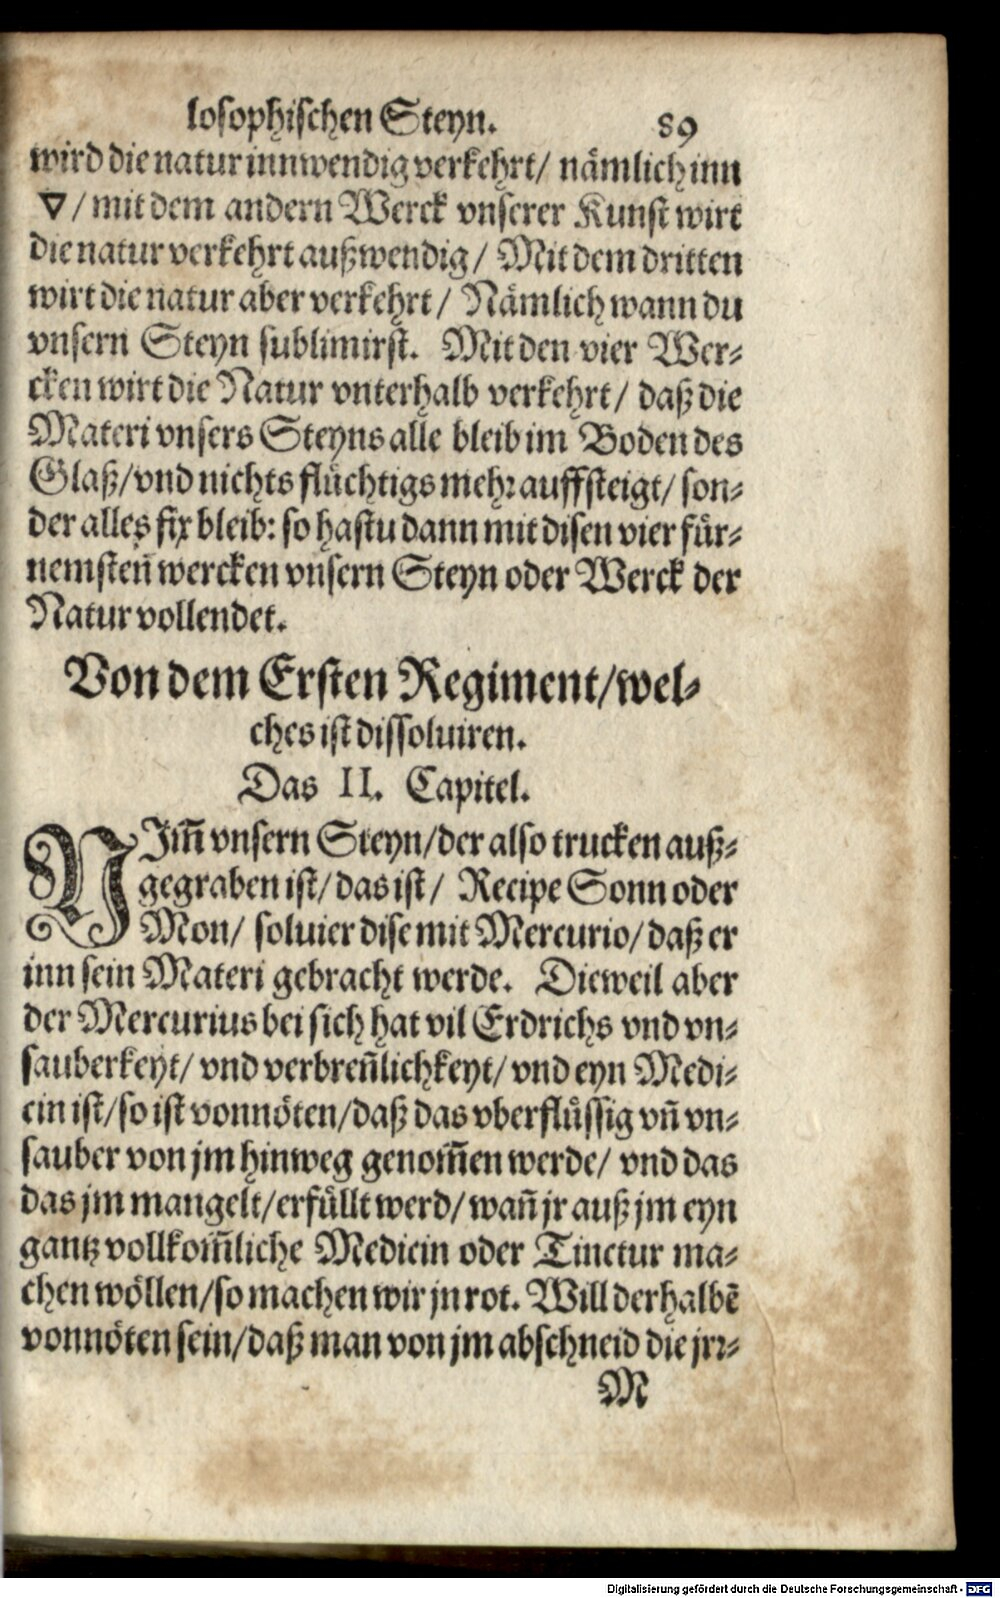 losophischen Steyn. 89
wird die natur innwendig verkehrt/ nämlich inn
🜄/ mit dem andern Werck vnserer Kunst wirt
die natur verkehrt außwendig/ Mit dem dritten
wirt die natur aber verkehrt/ Nämlich wann du
vnsern Steyn sublimirst. Mit den vier Wer⸗
cken wirt die Natur vnterhalb verkehrt/ daß die
Materi vnsers Steyns alle bleib im Boden des
Glaß/ vnd nichts flüchtigs mehr auffsteigt/ son⸗
der alles fix bleib: so hastu dann mit disen vier für⸗
nemsten̄ wercken vnsern Steyn oder Werck der
Natur vollendet.
Von dem Ersten Regiment/ wel⸗
ches ist dissoluiren.
Das II. Capitel.
NIm̄ vnsern Steyn/ der also trucken auß⸗
gegraben ist/ das ist/ Recipe Sonn oder
Mon/ soluier dise mit Mercurio/ daß er
inn sein Materi gebracht werde. Dieweil aber
der Mercurius bei sich hat vil Erdrichs vnd vn⸗
sauberkeyt/ vnd verbren̄lichkeyt/ vnd eyn Medi⸗
cin ist/ so ist vonnöten/ daß das vberflüssig vn̄ vn⸗
sauber von jm hinweg genom̄en werde/ vnd das
das jm mangelt/ erfüllt werd/ wan̄ jr auß jm eyn
gantz vollkom̄liche Medicin oder Tinctur ma⸗
chen wöllen/ so machen wir jn rot. Will derhalbē
vonnöten sein/ daß man von jm abschneid die jrr⸗
M
Digitalisierung gefördert durch die Deutsche Forschungsgemeinschaft - DFG